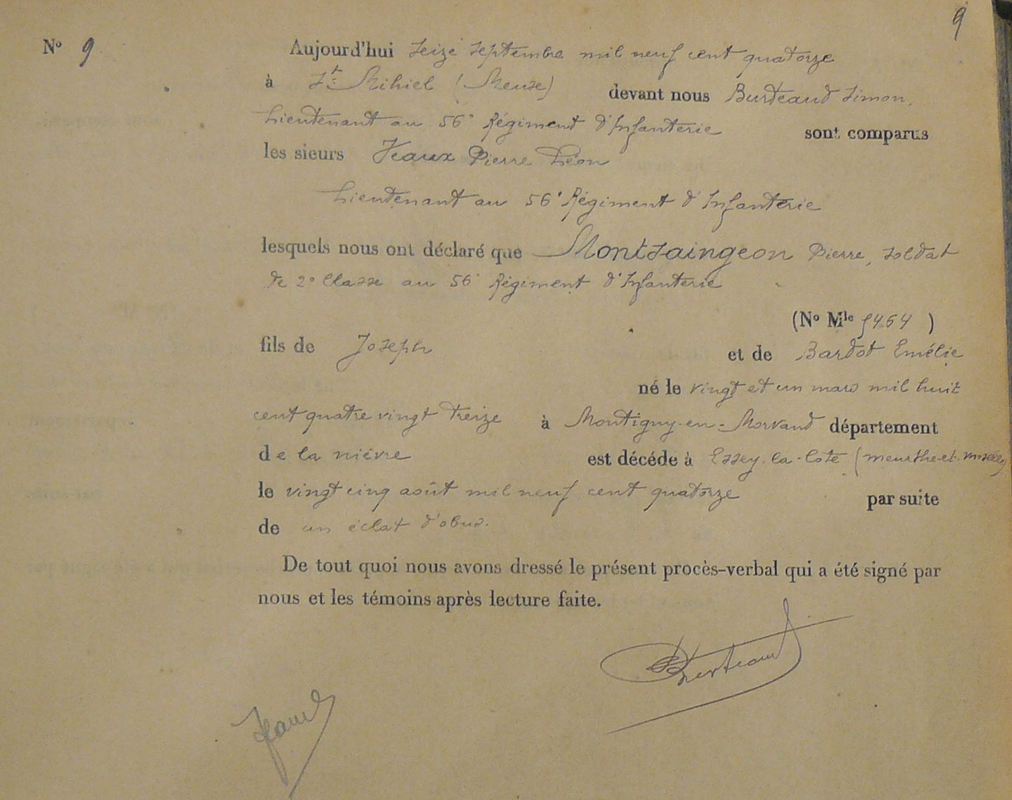 9
N° 9
Aujourd'hui seize septembre mil neuf cent quatorze
à St Mihiel (Meuse) devant nous Burteaud Simon,
Lieutenant au 56e Régiment d'Infanterie sont comparus
les sieurs Jeaux Pierre Léon
Lieutenant au 56e Régiment d'Infanterie
lesquels nous ont déclaré que Montsaingeon Pierre, soldat
de 2e Classe au 56e Régiment d'Infanterie
(N° Mle 5454 )
fils de Joseph et de Bardot Emélie
né le vingt et un mars mil huit
cent quatre vingt treize à Montigny-en-Morvand département
de la nièvre est décédé à Essey-la-Côte (meurthe-et-moselle)
le vingt cinq août mil neuf cent quatorze par suite
de un éclat d'obus.
De tout quoi nous avons dressé le présent procès-verbal qui a été signé par
nous et les témoins après lecture faite.
Burteaud